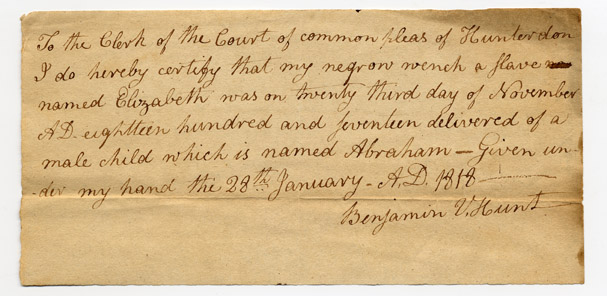 To the Clerk of the Court of common pleas of Hunterdon
I do hereby certify that my negrow wench a slave
named Elizabeth was on twenty third day of November
AD eighteen hundred and seventeen delivered of a
male child which is named Abraham — Given un-
-der my hand the 28th January - A.D. 1818
Benjamin V. Hunt